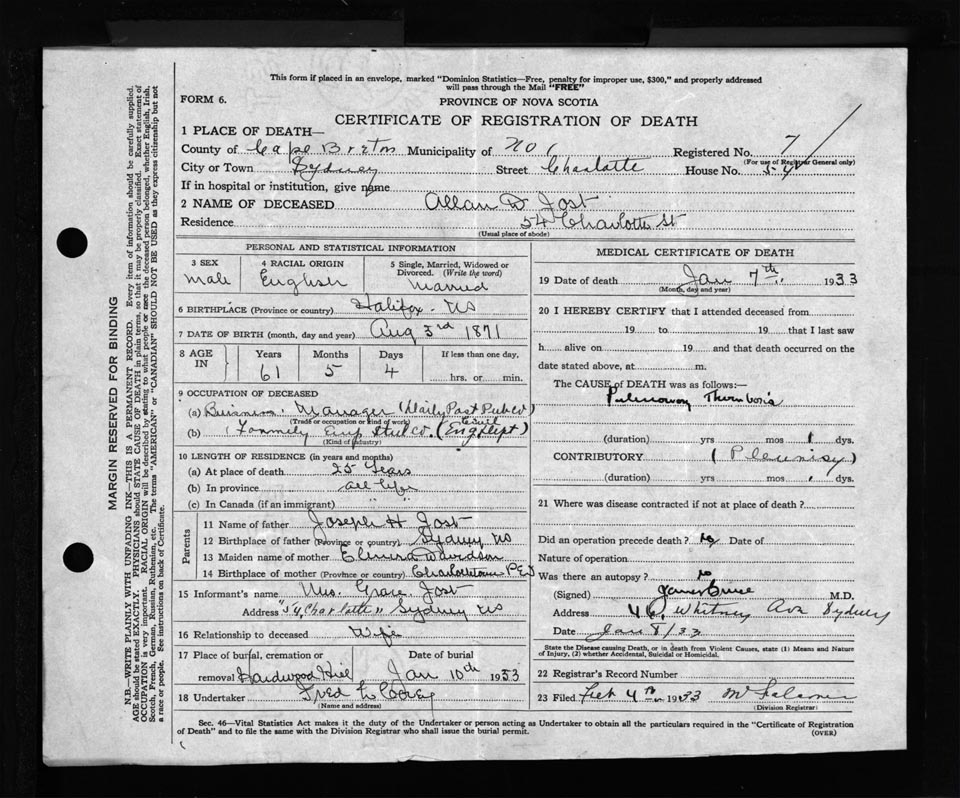 This form if placed in an envelope, marked "Dominion Statistics—Free, penalty for improper use, $300," and properly addressed
will pass through the Mail "FREE"
FORM 6.
PROVINCE OF NOVA SCOTIA
CERTIFICATE OF REGISTRATION OF DEATH
1 PLACE OF DEATH—
County of Cape Breton Municipality of Registered No. 7
(For use of Registrar General only)
City or Town Sydney Street Charlotte House No. 54
If in hospital or institution, give name
2 NAME OF DECEASED Allan D Jost
Residence 54 Charlotte St
(Usual place of abode)
PERSONAL AND STATISTICAL INFORMATION
3 SEX 4 RACIAL ORIGIN 5 Single, Married, Widowed or
Divorced. (Write the word)
Male English Married
6 BIRTHPLACE (Province or country) Halifax NS
7 DATE OF BIRTH (month, day and year) Aug 3rd 1871
8 AGE IN Years Months Days If less than one day,
61 5 4 hrs. or min.
9 OCCUPATION OF DECEASED
(a) Business Manager (Daily Post Pub Co)
(Trade or occupation or kind of work)
(b) Formerly Steel Co. (Eng Dept)
(Kind of industry)
10 LENGTH OF RESIDENCE (in years and months)
(a) At place of death 25 Years
(b) In province all life
(c) In Canada (if an immigrant) " "
Parents
11 Name of father Joseph H Jost
12 Birthplace of father (Province or country) Sydney NS
13 Maiden name of mother Elmira Davidson
14 Birthplace of mother (Province or country) Charlottetown P.E.I
15 Informant's name Mrs. Grace Jost
Address "54 Charlotte" Sydney NS
16 Relationship to deceased Wife
17 Place of burial, cremation or Date of burial
removal Hardwood Hill Jan 10th 1933
18 Undertaker Fred
(Name and address)
MEDICAL CERTIFICATE OF DEATH
19 Date of death Jan 7th 1933
(Month, day and year)
20 I HEREBY CERTIFY that I attended deceased from
19 to 19 that I last saw
h alive on 19 and that death occurred on the
date stated above, at m.
The CAUSE of DEATH was as follows:—
Pulmonary Thrombosis
(duration) yrs mos 1 dys.
CONTRIBUTORY (Pleurisy)
(duration) yrs mos dys.
21 Where was disease contracted if not at place of death?
Did an operation precede death? No Date of
Nature of operation
Was there an autopsy? No
(Signed) James Bruce M.D.
Address 46, Whitney Ave Sydney
Date Jan 8/33
State the Disease causing Death, or in death from Violent Causes, state (1) Means and Nature
of Injury, (2) whether Accidental, Suicidal or Homicidal.
22 Registrar's Record Number
23 Filed Feb 4th 1933
(Division Registrar)
Sec. 46—Vital Statistics Act makes it the duty of the Undertaker or person acting as Undertaker to obtain all the particulars required in the "Certificate of Registration
of Death" and to file the same with the Division Registrar who shall issue the burial permit.
(OVER)
MARGIN RESERVED FOR BINDING
N.B.—WRITE PLAINLY WITH UNFADING INK—THIS IS A PERMANENT RECORD. Every item of information should be carefully supplied.
AGE should be stated EXACTLY. PHYSICIANS should STATE CAUSE OF DEATH in plain terms, so that it may be properly classified. Exact statement of
OCCUPATION is very important. RACIAL ORIGIN will be described by stating to what people or race the deceased person belonged, whether English, Irish,
Scotch, French, German, Russian, Ruthenian, etc. The terms "AMERICAN" or "CANADIAN" SHOULD NOT BE USED as they express citizenship but not
a race or people. See instructions on back of Certificate.